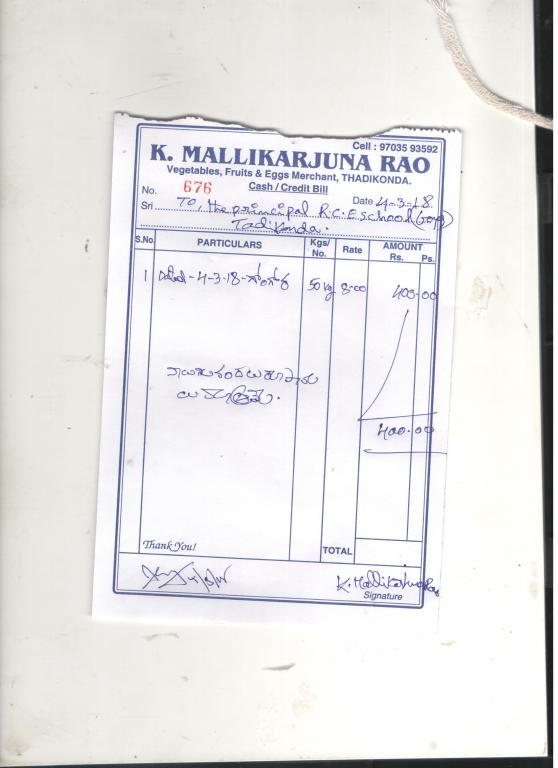 Cell : 97035 93592
K. MALLIKARJUNA RAO
Vegetables, Fruits & Eggs Merchant, THADIKONDA.
Cash / Credit Bill
No. 676 Date 4-3-18
Sri To, the principal R.C.E school
Tadikonda.
S.No. PARTICULARS Kgs/ No. Rate AMOUNT Rs. Ps.
1 Dated-4-3-18- 50 kg 8-00 400-00
నాలుగువందలు రూపాయ
లు మాత్రమే.
400-00
Thank You!
TOTAL
K. Mallikarjuna Rao
Signature